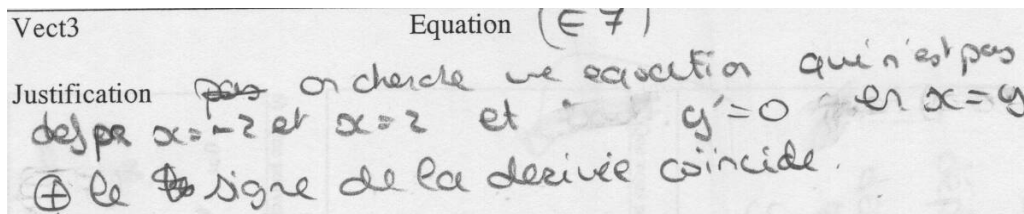 Vect3 Equation (E7)
Justification pas on cherche une equation qui n'est pas
def pr x=-2 et x=2 et y'=0 en x=y
⊕ le signe de la derivée coincide.